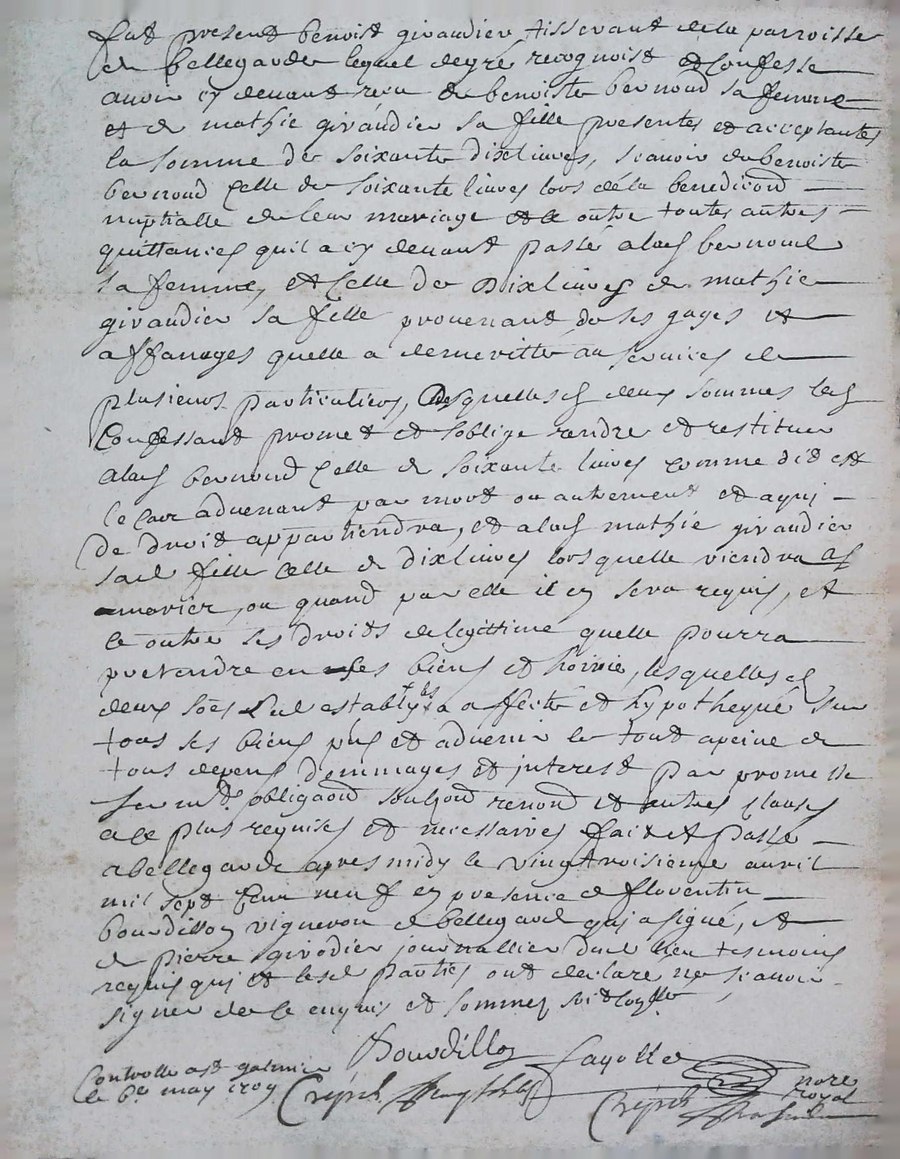 fut present benoist giraudier tisserant de la parroisse
de bellegarde lequel degré recognoist et confesse
avoir cy devant receu de benoiste bernoud sa femme
et de mathie giraudier sa fille presentes et acceptantes
la somme de soixante dix livres, scavoir de benoiste
bernoud celle de soixante livres lors de la benedicond
nuptialle de leur mariage et ce outre toutes autres
quittances quil a cy devant passé a lad bernoud
sa femme, et celle de dix livres de mathie
giraudier sa fille provenant de ses gages et
affanages quelle a de meritte au services de
plusieurs particuliers, Desquelles d deux sommes led
Confessant promet et soblige rendre et restituer
alad bernoud celle de soixante livres comme dit est
le cas advenant par mort ou autrement et a qui
de droit appartiendra, et alad mathie giraudier
sad fille celle de dix livres lorsquelle viendra as
marier, ou quand par elle il en sera requis, et
ce outre ses droits de legittime quelle pourra
pretendre en ses biens et hoirie, lesquelles d
deux soes led estably a affecté et hypothequé sur
tous ses biens pns et advenir le tout a peine de
tous depens dommages et interest par promesse
serm.t obligaond soubzond renond et autres clauses
a ce plus requises et necessaires fait et passé
a bellegarde apres midy le vingt troisieme avril
mil sept cent neuf en presence de florentin
bourdillon vigneron de bellegarde qui a signé, et
de pierre girodier journallier dud lieu tesmoins
requis qui et lesd parties ont declare ne scavoir
signer de ce enquis et sommez soit
Bourdillon Cayotte
Controlle a st galmier
le 6e may 1709
nore
royal